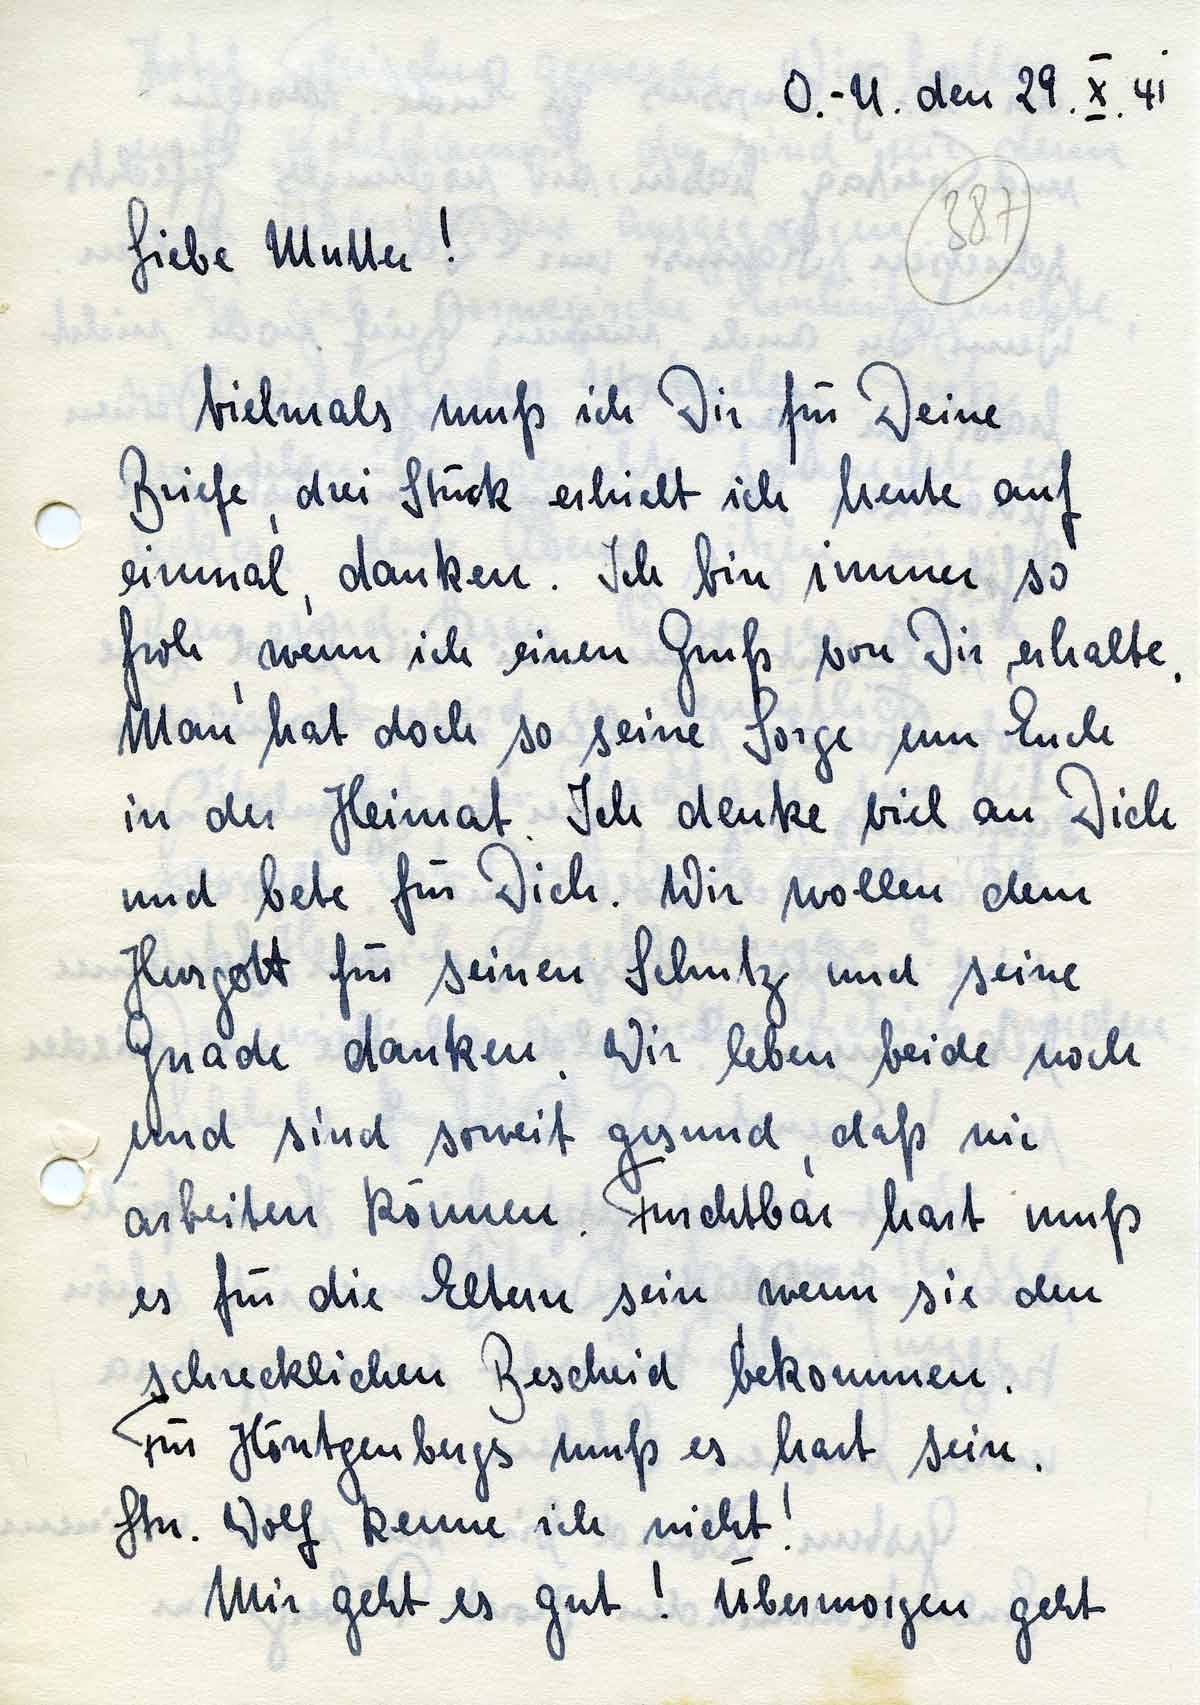 O.-U. den 29. X. 41
387
Liebe Mutter!
Vielmals muß ich Dir für Deine
Briefe, drei Stück erhielt ich heute auf
einmal, danken. Ich bin immer so
froh, wenn ich einen Gruß von Dir erhalte.
Man hat doch so seine Sorge um Euch
in der Heimat. Ich denke viel an Dich
und bete für Dich. Wir wollen dem
Herrgott für seinen Schutz und seine
Gnade danken. Wir leben beide noch
und sind soweit gesund, daß wir
arbeiten können. Furchtbar hart muß
es für die Eltern sein wenn sie den
schrecklichen Bescheid bekommen.
Für Höntgenbergs muß es hart sein.
Stu. Wolf kenne ich nicht!
Mir geht es gut! Übermorgen geht